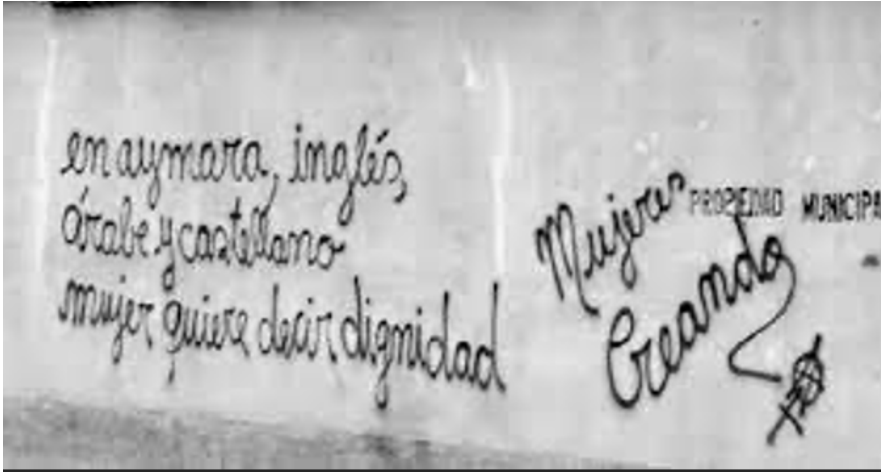 en aymara, inglés,
árabe y castellano
mujer quiere decir dignidad
Mujeres
Creando
PROPIEDAD MUNICIPA